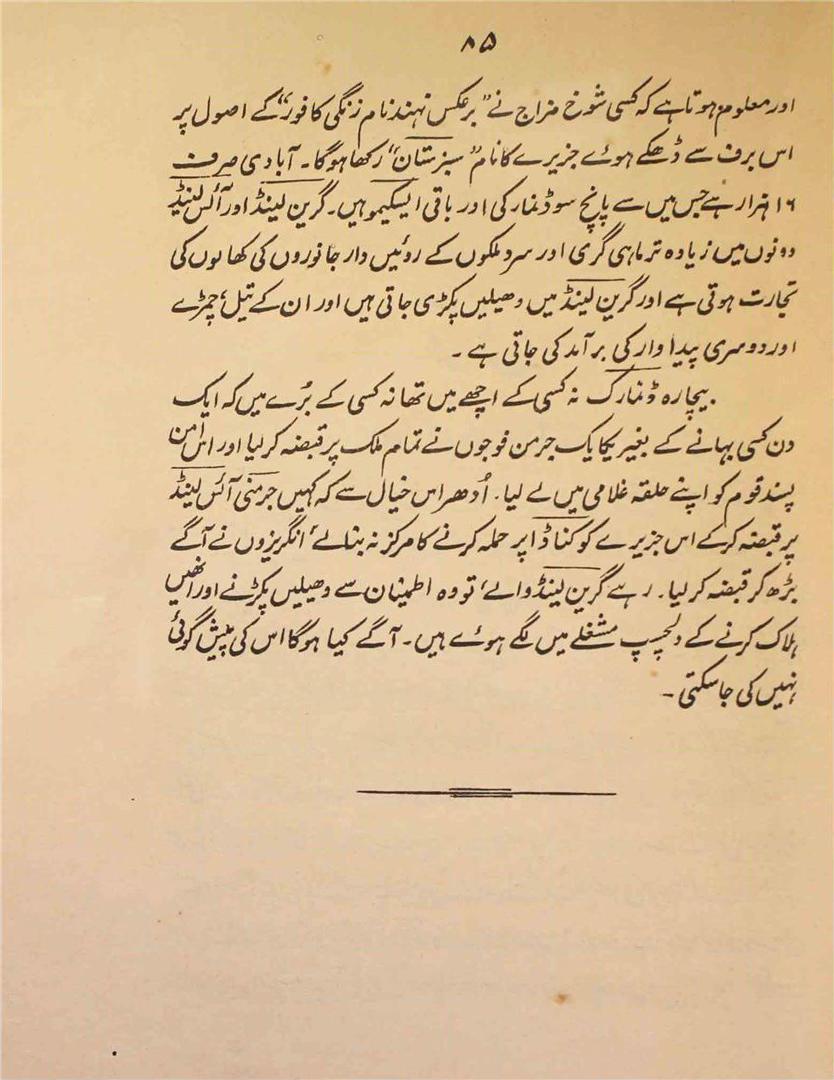 ۸۵
اور معلوم ہوتا ہے کہ کسی شوخ مزاج نے "برعکس نہند نام زنگی کافور" کے اصول پر
اس برف سے ڈھکے ہوئے جزیرے کا نام "سبزستان" رکھا ہوگا۔ آبادی صرف
۱۶ ہزار ہے جس میں سے پانچ سو ڈنمارکی اور باقی ایسکیمو ہیں۔ گرین لینڈ اور آئس لینڈ
دونوں میں زیادہ تر ماہی گری اور سرد ملکوں کے روئیں دار جانوروں کی کھالوں کی
تجارت ہوتی ہے اور گرین لینڈ میں وھیلیں پکڑی جاتی ہیں اور ان کے تیل، چمڑے
اور دوسری پیداوار کی برآمد کی جاتی ہے۔
بیچارہ ڈنمارک نہ کسی کے اچھے میں تھا نہ کسی کے بُرے میں کہ ایک
دن کسی بہانے کے بغیر یکایک جرمن فوجوں نے تمام ملک پر قبضہ کر لیا اور اس امن
پسند قوم کو اپنے حلقہ غلامی میں لے لیا۔ اُدھر اس خیال سے کہ کہیں جرمنی آئس لینڈ
پر قبضہ کرکے اس جزیرے کو کناڈا پر حملہ کرنے کا مرکز نہ بنالے، انگریزوں نے آگے
بڑھ کر قبضہ کر لیا۔ رہے گرین لینڈ والے، تو وہ اطمینان سے وھیلیں پکڑنے اور انھیں
ہلاک کرنے کے دلچسپ مشغلے میں لگے ہوئے ہیں۔ آگے کیا ہوگا اس کی پیش گوئی
نہیں کی جاسکتی۔